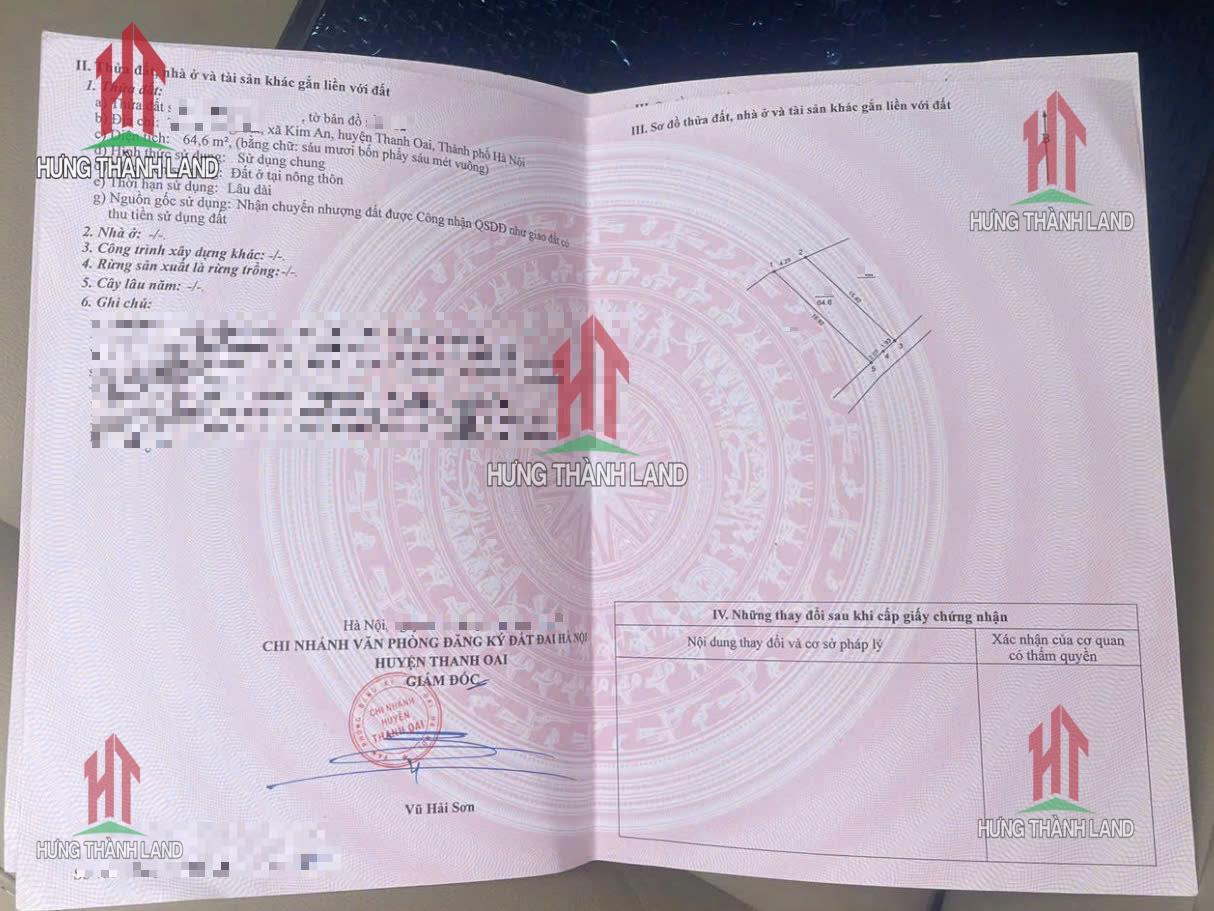 II. Thửa đất, nhà ở và tài sản khác gắn liền với đất
1. Thửa đất:
a) Thửa đất s , tờ bản đồ
b) Địa chỉ: , xã Kim An, huyện Thanh Oai, Thành phố Hà Nội
c) Diện tích: 64,6 m², (bằng chữ: sáu mươi bốn phẩy sáu mét vuông)
d) Hình thức sử dụng: Sử dụng chung
Đất ở tại nông thôn
e) Thời hạn sử dụng: Lâu dài
g) Nguồn gốc sử dụng: Nhận chuyển nhượng đất được Công nhận QSDĐ như giao đất có
thu tiền sử dụng đất
2. Nhà ở: -/-.
3. Công trình xây dựng khác: -/-.
4. Rừng sản xuất là rừng trồng: -/-.
5. Cây lâu năm: -/-.
6. Ghi chú:
Hà Nội,
CHI NHÁNH VĂN PHÒNG ĐĂNG KÝ ĐẤT ĐAI HÀ NỘI
HUYỆN THANH OAI
GIÁM ĐỐC
CHI NHÁNH
HUYỆN
THANH OAI
Vũ Hải Sơn
III. Sơ đồ thửa đất, nhà ở và tài sản khác gắn liền với đất
B
1
4.29
2
64.6
3
4
5
IV. Những thay đổi sau khi cấp giấy chứng nhận
Nội dung thay đổi và cơ sở pháp lý
Xác nhận của cơ quan
có thẩm quyền
HT
HƯNG THÀNH LAND
HT
HƯNG THÀNH LAND
HT
HƯNG THÀNH LAND
HT
HƯNG THÀNH LAND
HT
HƯNG THÀNH LAND